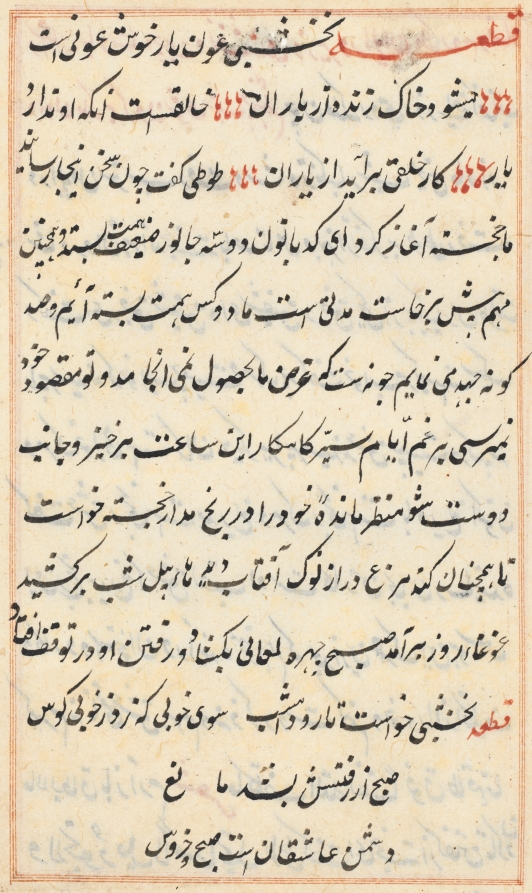 قطعه نخشبی عون یار خوش عونی است
نیشو و خاک زنده از یاران خالقست آنکه او ندارد
یار کار خلقی برآید از یاران طوطی گفت چون سخن اینجا رسانید
ما خجسته آغاز کرد ای کدبانون دو سه جانور ضعیف همت بستند و همچنین
مهم پیش برخاست مدتی است ما دو کس همت بسته آئیم و صد
کونه جهد می نمایم چونست که غرض ما بحصول نمی انجامد و تو بمقصود خود
نمیرسی برغم ایام این ساعت برخیز و جانب
دوست شو منتظر مانده خود را در رنج مدار خجسته خواست
تا همچنان کند مرغ دراز نوک آفتاب شب برکشید
غوغاء روز برآمد صبح چهره لمعانی بکشاد و رفتن او در توقف افتاد
قطعه نخشبی خواست تا رود امشب سوی خوبی که زد ز خوبی کوس
صبح از رفتنش بشد مانع
دشمن عاشقان است صبح و خروس